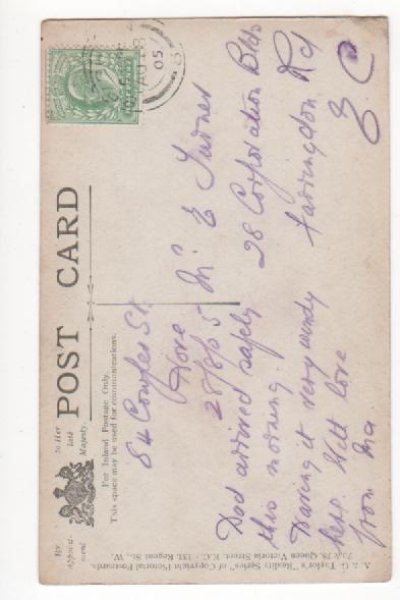 POST CARD
By
Appoint-
ment
to Her
late
Majesty.
For Inland Postage Only.
This space may be used for communications.
84 Cowper St.
Hove
28/8/05
Dad arrived safely
this morning.
Having it very windy
here. With love
from Ma
Mr E Turner
28 Corporation Bldgs
Farringdon Rd
E C
AU 28
05
A. & G. Taylor's "Reality Series" of Copyright Pictorial Postcards.
70 & 78, Queen Victoria Street, E.C. - 131, Regent St., W.